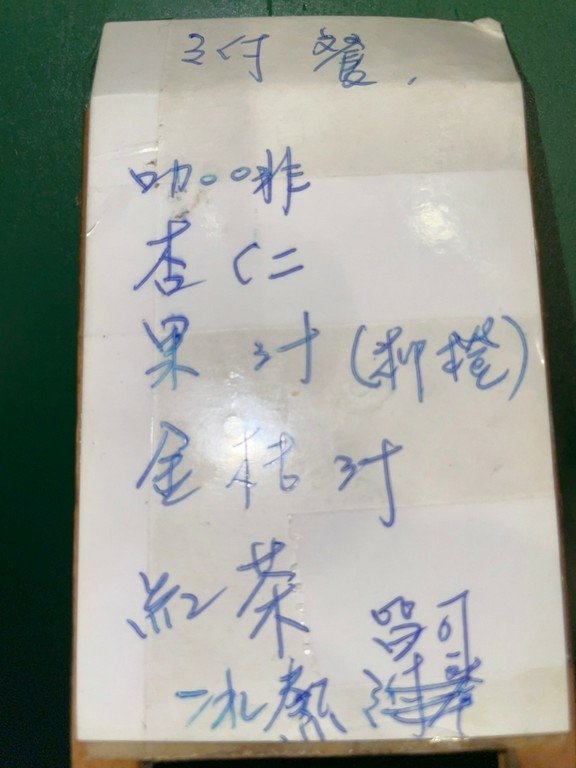 付餐
咖啡
杏仁
果汁(柳橙)
金桔汁
紅茶
冰熱皆可